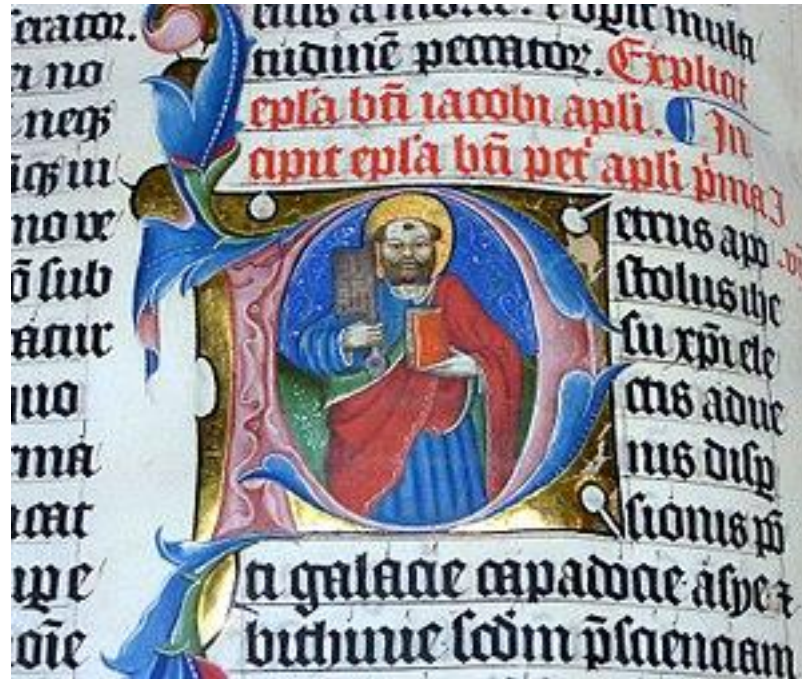 serator.
a no
neqȝ
iqȝ in
mo ve
ō sub
ratur
quo
ma
icat
upe
oīe
eius a morte. ⁊ opīt multi
tudinē peccatoꝝ. Explicit
epl̄a bt̄i iacobi apl̄i. In
cipit epl̄a bt̄i pet̍ apl̄i p̍ma
etrus apo
stolus ihe
su xp̄i ele
ctis adue
nis disp̲
sionis pō
ti galacie capadocie asye ⁊
bithinie scd̄m p̄scienciam